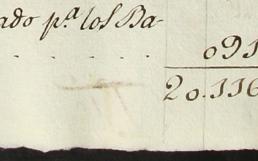 ado pª los Ba-
. . . . . 091
20.116